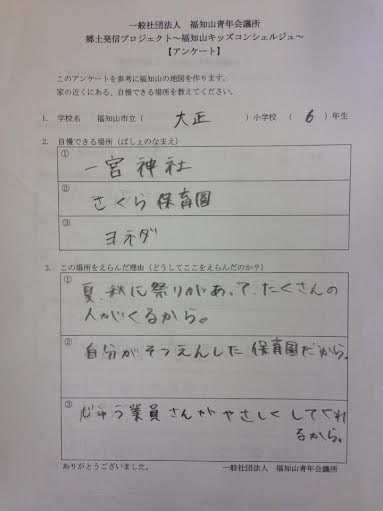 一般社団法人　福知山青年会議所
郷土発信プロジェクト～福知山キッズコンシェルジュ～
【アンケート】
このアンケートを参考に福知山の地図を作ります。
家の近くにある、自慢できる場所を教えてください。
1. 学校名　福知山市立（　大正　）小学校（　6　）年生
2. 自慢できる場所（ばしょのなまえ）
①
一宮神社
②
さくら保育園
③
ヨネダ
3. この場所をえらんだ理由（どうしてここをえらんだのか？）
①
夏、秋に祭りがあって、たくさんの
人がくるから。
②
自分がそつえんした保育園だから。
③
じゅう業員さんがやさしくしてくれ
るから。
ありがとうございました。　一般社団法人　福知山青年会議所